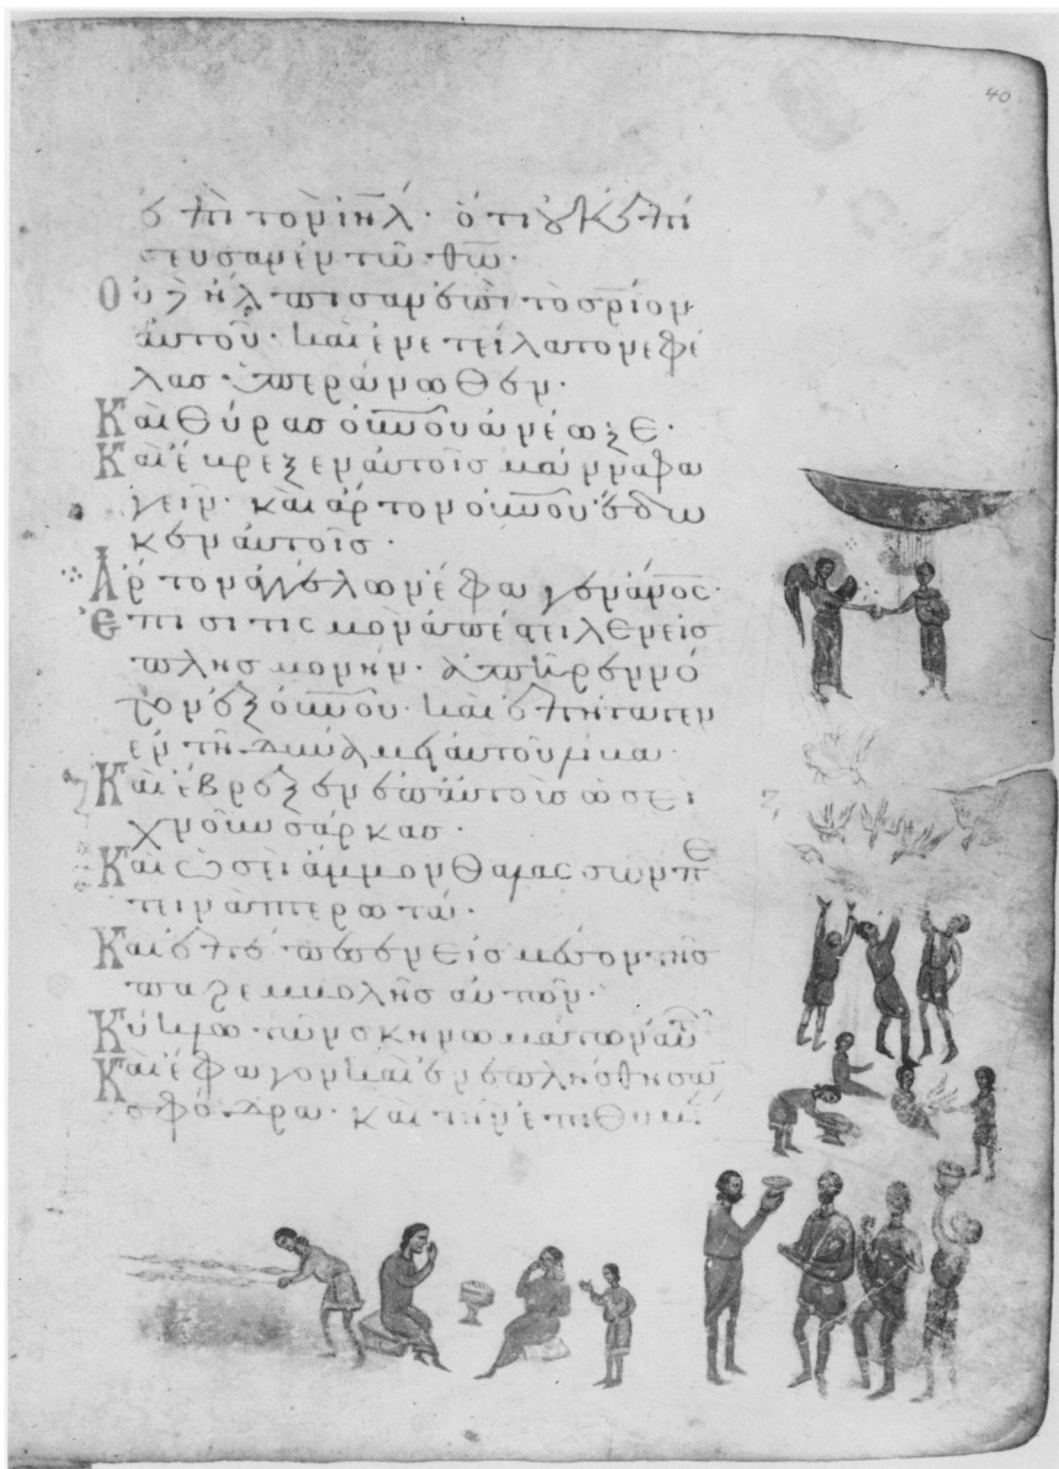 40
ἐπὶ τὸν ἰη̅λ· ὅτι οὐκ ἐπί
στευσαν ἐν τῶ θω̅·
Οὐδὲ ἤλπισαν ἐπὶ τὸ σρ̅ίον
αὐτοῦ· καὶ ἐνετείλατο νεφέ
λαις ὑπεράνωθεν·
Καὶ θύρας οὐν̅οῦ ἀνέωξε·
Καὶ ἔβρεξεν αὐτοῖς μάννα φα
γεῖν· καὶ ἄρτον οὐν̅οῦ ἔδω
κεν αὐτοῖς·
Ἄρτον ἀγγέλων ἔφαγεν ἄν̅ος·
Ἐπισιτισμὸν ἀπέστειλεν εἰς
πλησμονήν· ἀπῆρεν νό
τον ἐξ οὐν̅οῦ· καὶ ἐπήγαγεν
ἐν τῆ δυνάμει αὐτοῦ λίβα·
Καὶ ἔβρεξεν ἐπ αὐτοὺς ὡσεὶ
χνοῦν σάρκας·
Καὶ ὡσεὶ ἄμμον θαλασσῶν πε
τεινὰ πτερωτά·
Καὶ ἐπέπεσεν εἰς μέσον τῆς
παρεμβολῆς αὐτῶν·
Κύκλω τῶν σκηνωμάτων αὐτῶν
Καὶ ἔφαγον καὶ ἐνεπλήσθησαν
σφόδρα· καὶ τὴν ἐπιθυμί